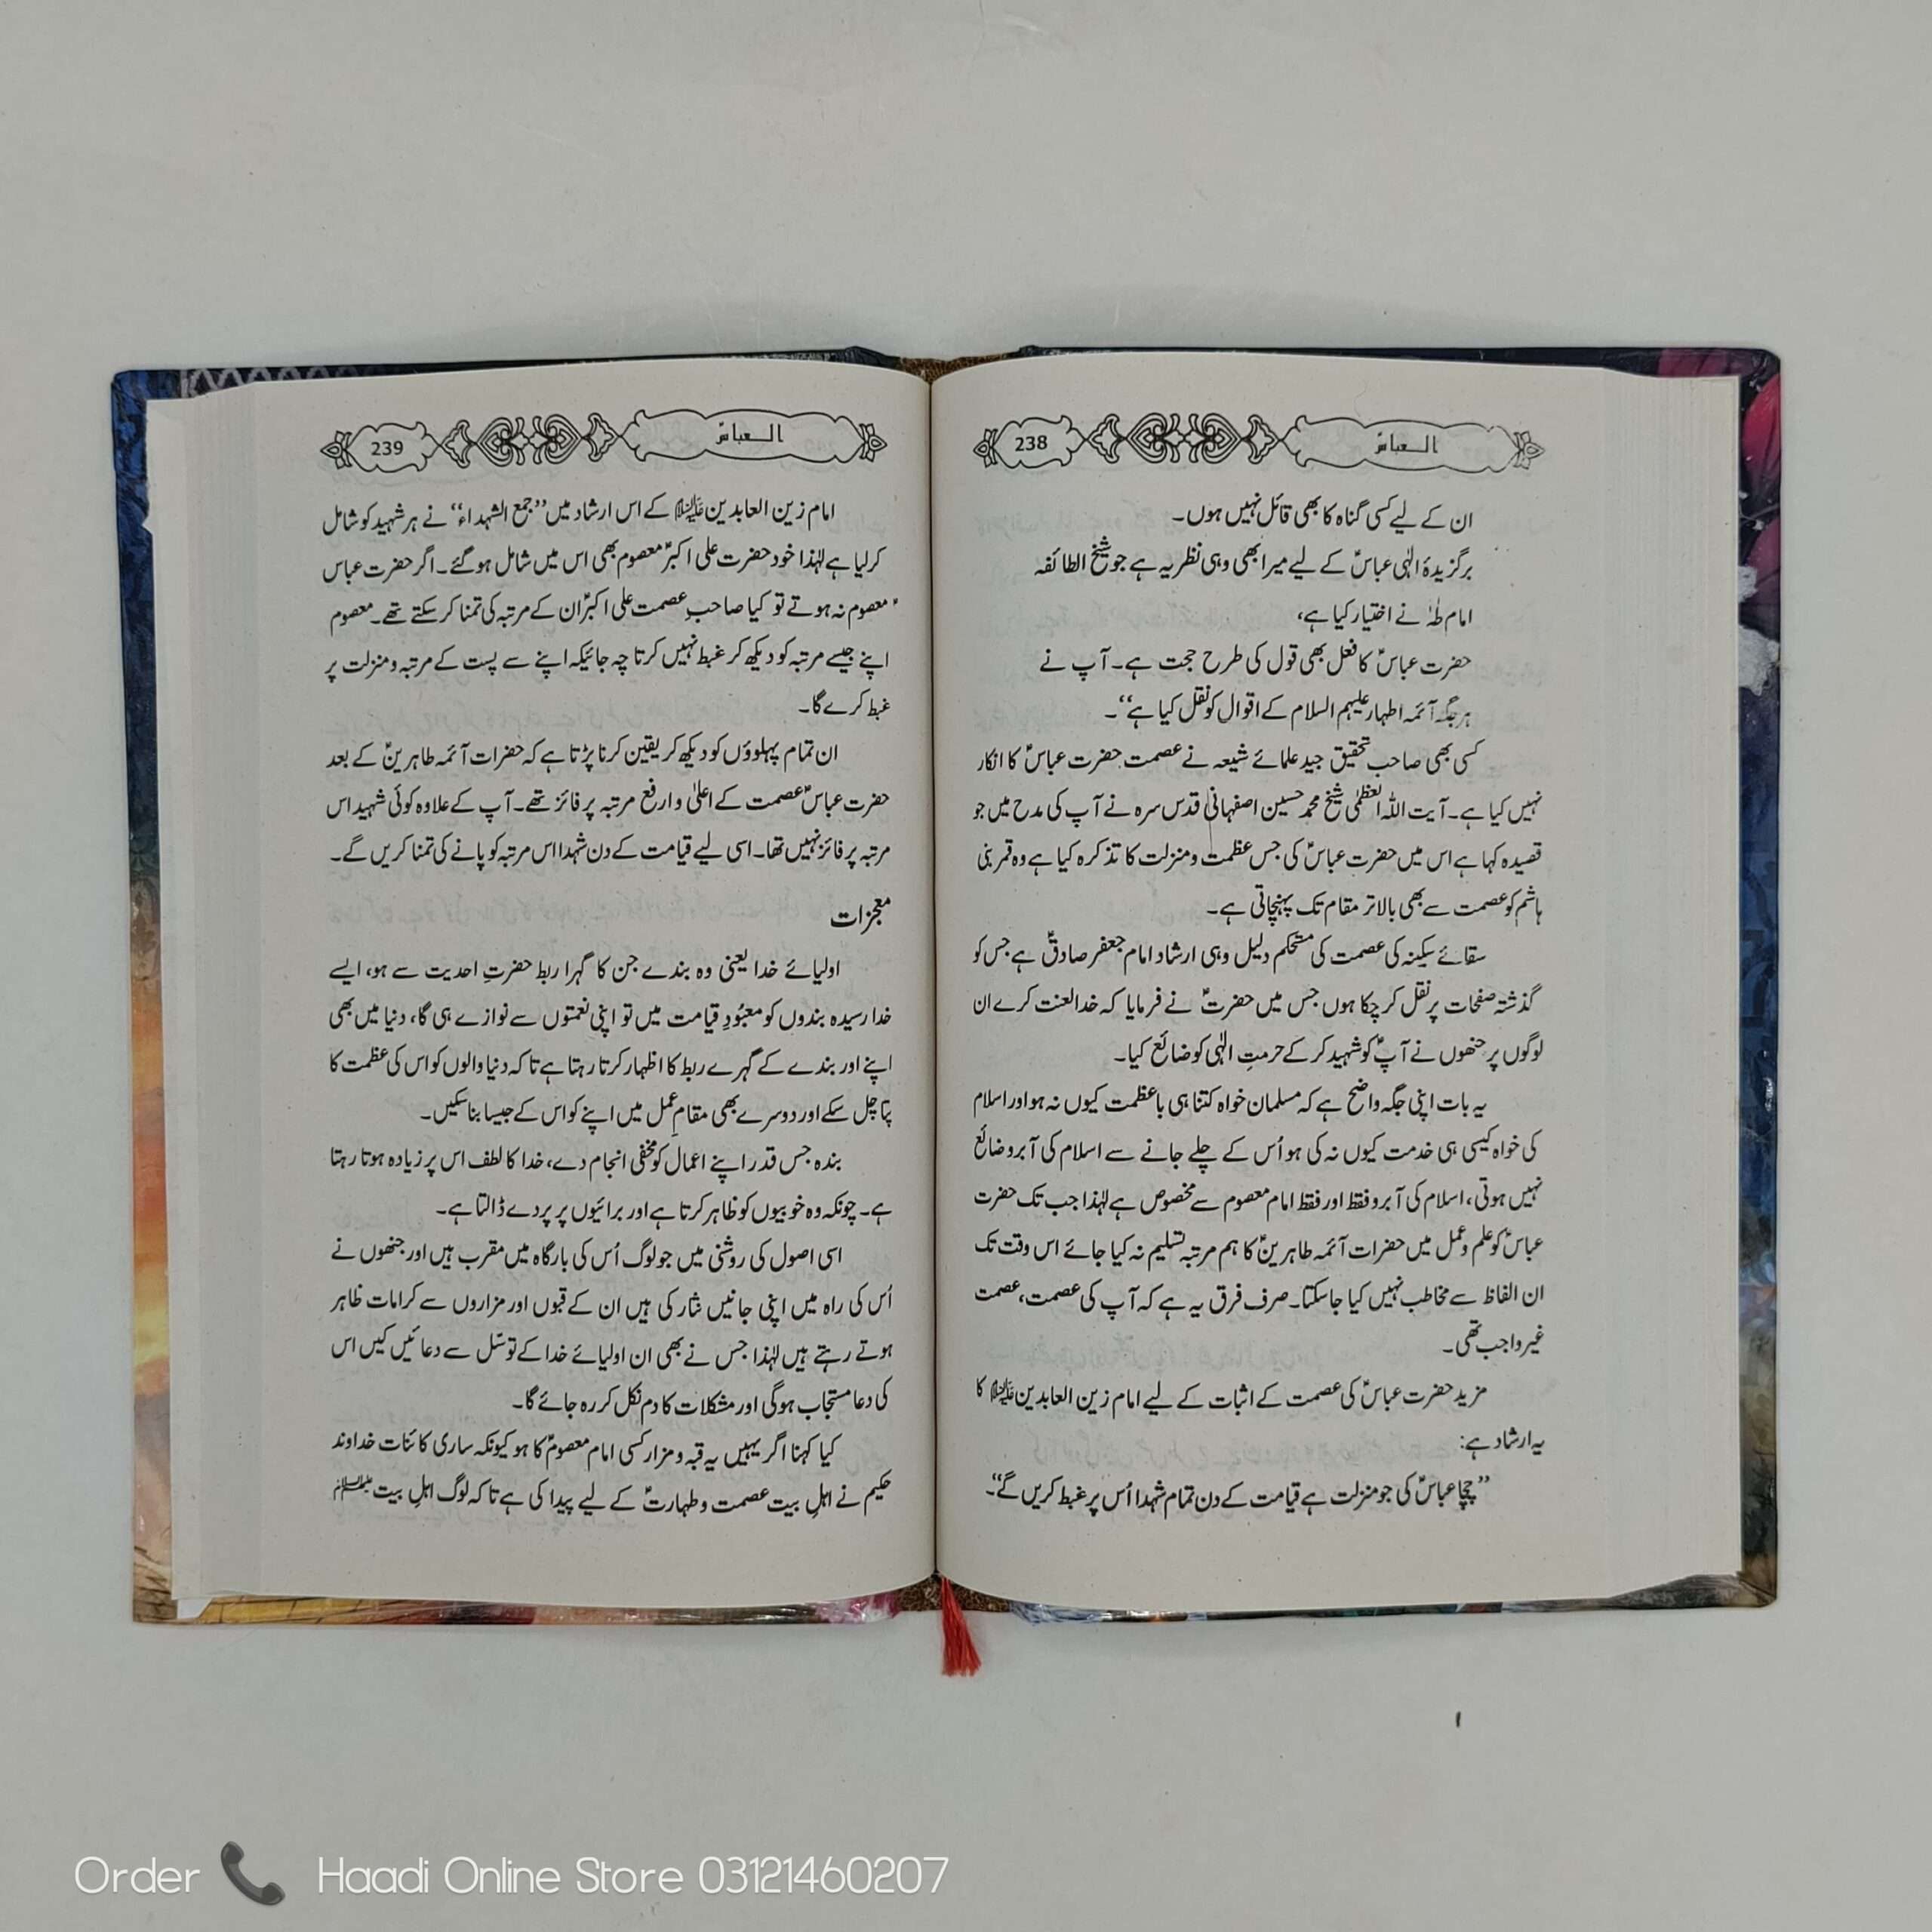 العباسؑ
238
ان کے لیے کسی گناہ کا بھی قائل نہیں ہوں۔
برگزیدۂ الٰہی عباسؑ کے لیے میرا بھی وہی نظریہ ہے جو شیخ الطائفہ
امام طٰہٰ نے اختیار کیا ہے،
حضرت عباسؑ کا فعل بھی قول کی طرح حجت ہے۔ آپ نے
ہر جگہ آئمہ اطہار علیہم السلام کے اقوال کو نقل کیا ہے‘‘۔
کسی بھی صاحب تحقیق جید علمائے شیعہ نے عصمت حضرت عباسؑ کا انکار
نہیں کیا ہے۔ آیت اللہ العظمٰی شیخ محمد حسین اصفہانی قدس سرہ نے آپ کی مدح میں جو
قصیدہ کہا ہے اس میں حضرت عباسؑ کی جس عظمت و منزلت کا تذکرہ کیا ہے وہ قمر بنی
ہاشم کو عصمت سے بھی بالاتر مقام تک پہنچاتی ہے۔
سقائے سکینہ کی عصمت کی مستحکم دلیل وہی ارشاد امام جعفر صادقؑ ہے جس کو
گذشتہ صفحات پر نقل کر چکا ہوں جس میں حضرتؑ نے فرمایا کہ خدا لعنت کرے ان
لوگوں پر جنھوں نے آپؑ کو شہید کر کے حرمتِ الٰہی کو ضائع کیا۔
یہ بات اپنی جگہ واضح ہے کہ مسلمان خواہ کتنا ہی باعظمت کیوں نہ ہو اور اسلام
کی خواہ کیسی ہی خدمت کیوں نہ کی ہو اُس کے چلے جانے سے اسلام کی آبرو ضائع
نہیں ہوتی، اسلام کی آبرو فقط اور فقط امام معصوم سے مخصوص ہے لہٰذا جب تک حضرت
عباسؑ کو علم و عمل میں حضرات آئمہ طاہرینؑ کا ہم مرتبہ تسلیم نہ کیا جائے اس وقت تک
ان الفاظ سے مخاطب نہیں کیا جاسکتا۔ صرف فرق یہ ہے کہ آپ کی عصمت، عصمت
غیر واجب تھی۔
مزید حضرت عباسؑ کی عصمت کے اثبات کے لیے امام زین العابدین علیہ السلام کا
یہ ارشاد ہے:
’’چچا عباسؑ کی جو منزلت ہے قیامت کے دن تمام شہدا اُس پر غبط کریں گے‘‘۔
العباسؑ
239
امام زین العابدین علیہ السلام کے اس ارشاد میں ’’جمع الشہداء‘‘ نے ہر شہید کو شامل
کرلیا ہے لہٰذا خود حضرت علی اکبرؑ معصوم بھی اس میں شامل ہوگئے۔ اگر حضرت عباس
معصوم نہ ہوتے تو کیا صاحبِ عصمت علی اکبرؑ ان کے مرتبہ کی تمنا کر سکتے تھے۔ معصوم
اپنے جیسے مرتبہ کو دیکھ کر غبط نہیں کرتا چہ جائیکہ اپنے سے پست کے مرتبہ و منزلت پر
غبط کرے گا۔
ان تمام پہلوؤں کو دیکھ کر یقین کرنا پڑتا ہے کہ حضرات آئمہ طاہرینؑ کے بعد
حضرت عباسؑ عصمت کے اعلیٰ و ارفع مرتبہ پر فائز تھے۔ آپ کے علاوہ کوئی شہید اس
مرتبہ پر فائز نہیں تھا۔ اسی لیے قیامت کے دن شہدا اس مرتبہ کو پانے کی تمنا کریں گے۔
معجزات
اولیائے خدا یعنی وہ بندے جن کا گہرا ربط حضرتِ احدیت سے ہو، ایسے
خدا رسیدہ بندوں کو معبُودِ قیامت میں تو اپنی نعمتوں سے نوازے ہی گا، دنیا میں بھی
اپنے اور بندے کے گہرے ربط کا اظہار کرتا رہتا ہے تاکہ دنیا والوں کو اس کی عظمت کا
پتا چل سکے اور دوسرے بھی مقامِ عمل میں اپنے کو اس کے جیسا بنا سکیں۔
بندہ جس قدر اپنے اعمال کو مخفی انجام دے، خدا کا لطف اس پر زیادہ ہوتا رہتا
ہے۔ چونکہ وہ خوبیوں کو ظاہر کرتا ہے اور برائیوں پر پردے ڈالتا ہے۔
اسی اصول کی روشنی میں جو لوگ اُس کی بارگاہ میں مقرب ہیں اور جنھوں نے
اُس کی راہ میں اپنی جانیں نثار کی ہیں ان کے قبوں اور مزاروں سے کرامات ظاہر
ہوتے رہتے ہیں لہٰذا جس نے بھی ان اولیائے خدا کے توسّل سے دعائیں کیں اس
کی دعا مستجاب ہوگی اور مشکلات کا دم نکل کر رہ جائے گا۔
کیا کہنا اگر یہیں یہ قبہ و مزار کسی امام معصومؑ کا ہو کیونکہ ساری کائنات خداوند
حکیم نے اہلِ بیت عصمت و طہارتؑ کے لیے پیدا کی ہے تاکہ لوگ اہلِ بیت علیہم السلام
Order Haadi Online Store 03121460207